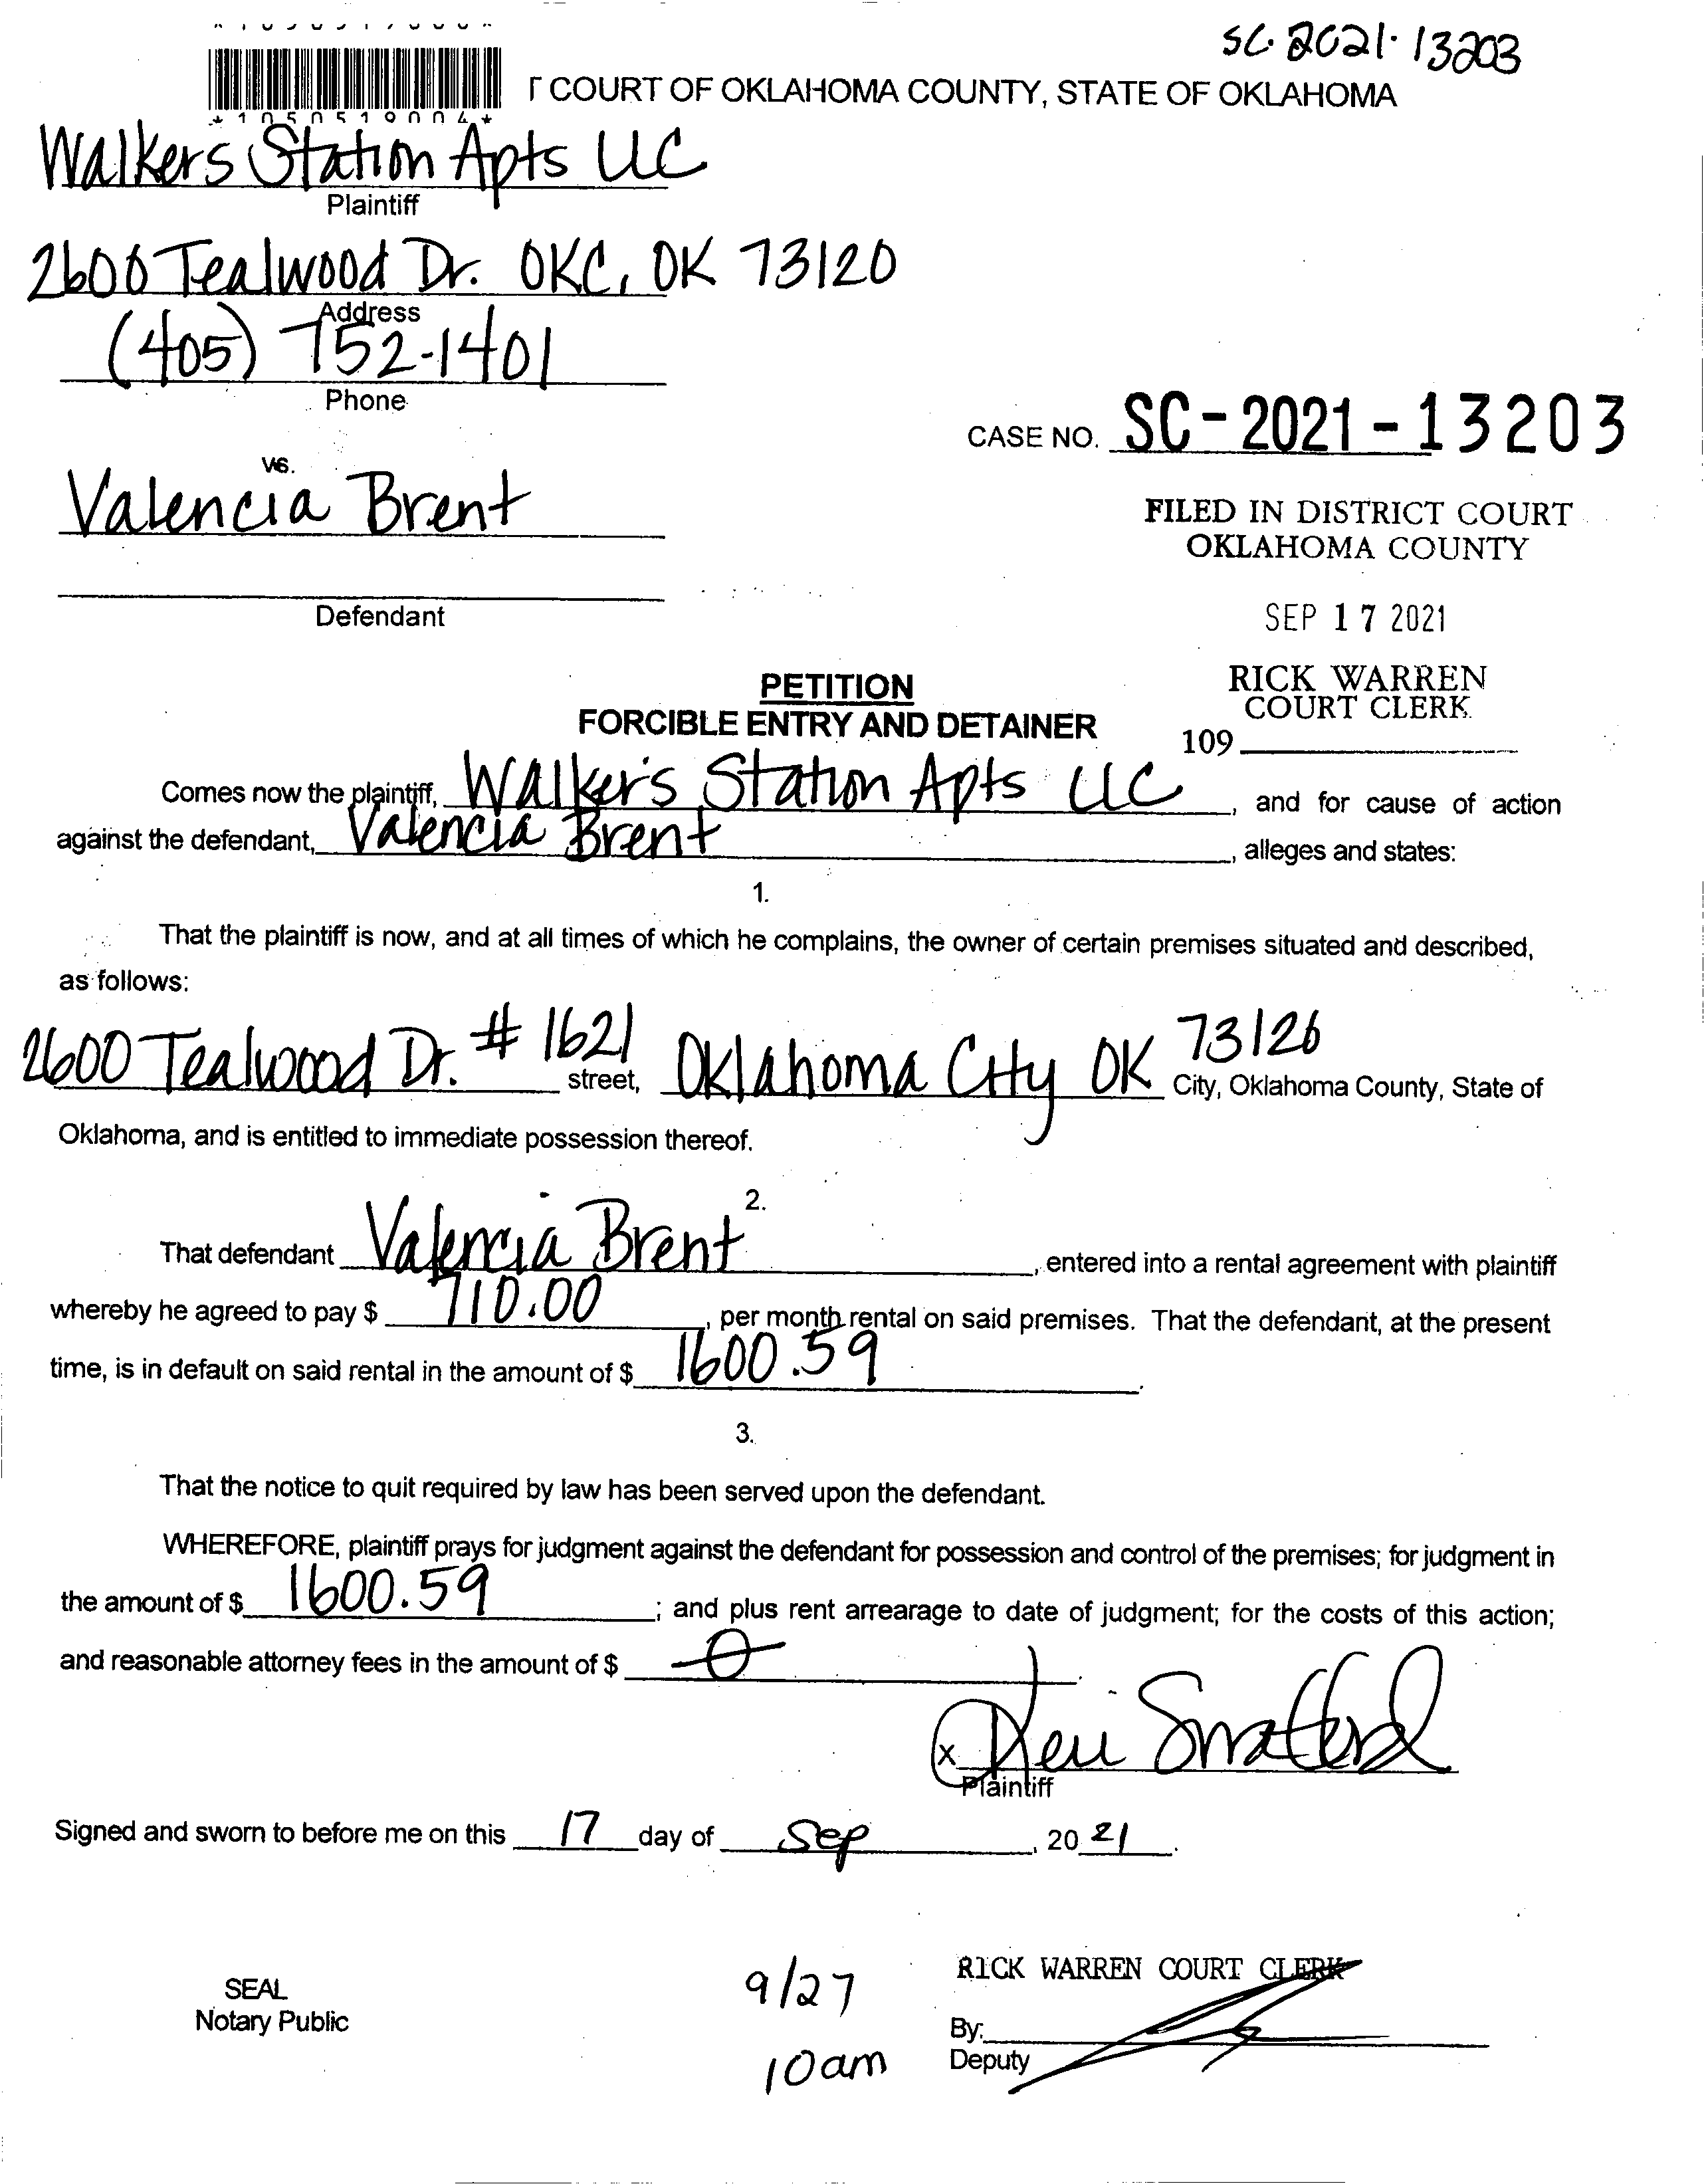 SC-2021-13203
T COURT OF OKLAHOMA COUNTY, STATE OF OKLAHOMA
*1050519004*
Walkers Station Apts LLC
Plaintiff
2600 Tealwood Dr. OKC, OK 73120
Address
(405) 752-1401
Phone
CASE NO. SC-2021-13203
vs.
Valencia Brent
FILED IN DISTRICT COURT
OKLAHOMA COUNTY
Defendant
SEP 17 2021
RICK WARREN
COURT CLERK
109
PETITION
FORCIBLE ENTRY AND DETAINER
Comes now the plaintiff, Walker's Station Apts LLC, and for cause of action
against the defendant, Valencia Brent, alleges and states:
1.
That the plaintiff is now, and at all times of which he complains, the owner of certain premises situated and described,
as follows:
2600 Tealwood Dr. # 1621 street, Oklahoma City OK 73120 City, Oklahoma County, State of
Oklahoma, and is entitled to immediate possession thereof.
2.
That defendant Valencia Brent, entered into a rental agreement with plaintiff
whereby he agreed to pay $ 710.00, per month rental on said premises. That the defendant, at the present
time, is in default on said rental in the amount of $ 1600.59.
3.
That the notice to quit required by law has been served upon the defendant.
WHEREFORE, plaintiff prays for judgment against the defendant for possession and control of the premises; for judgment in
the amount of $ 1600.59; and plus rent arrearage to date of judgment; for the costs of this action;
and reasonable attorney fees in the amount of $ 0.
x
Plaintiff
Signed and sworn to before me on this 17 day of Sep, 2021.
SEAL
Notary Public
9/27
10am
RICK WARREN COURT CLERK
By:
Deputy